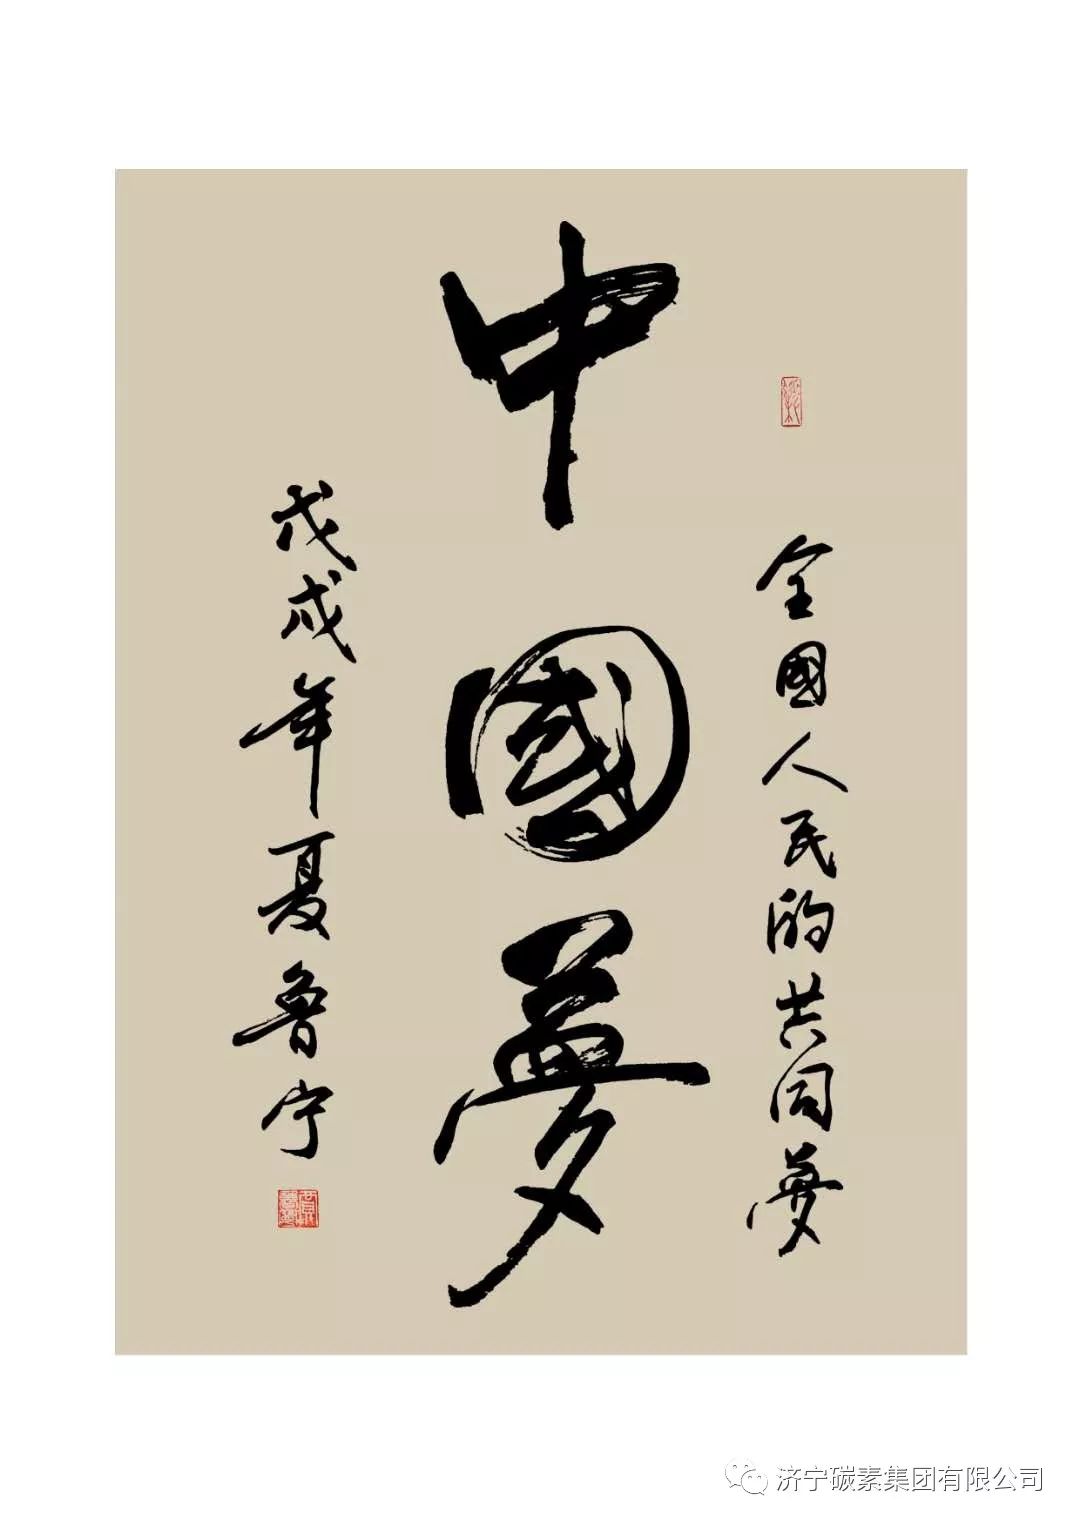 全國人民的共同夢
中國夢
戊戌年夏魯宁
济宁碳素集团有限公司